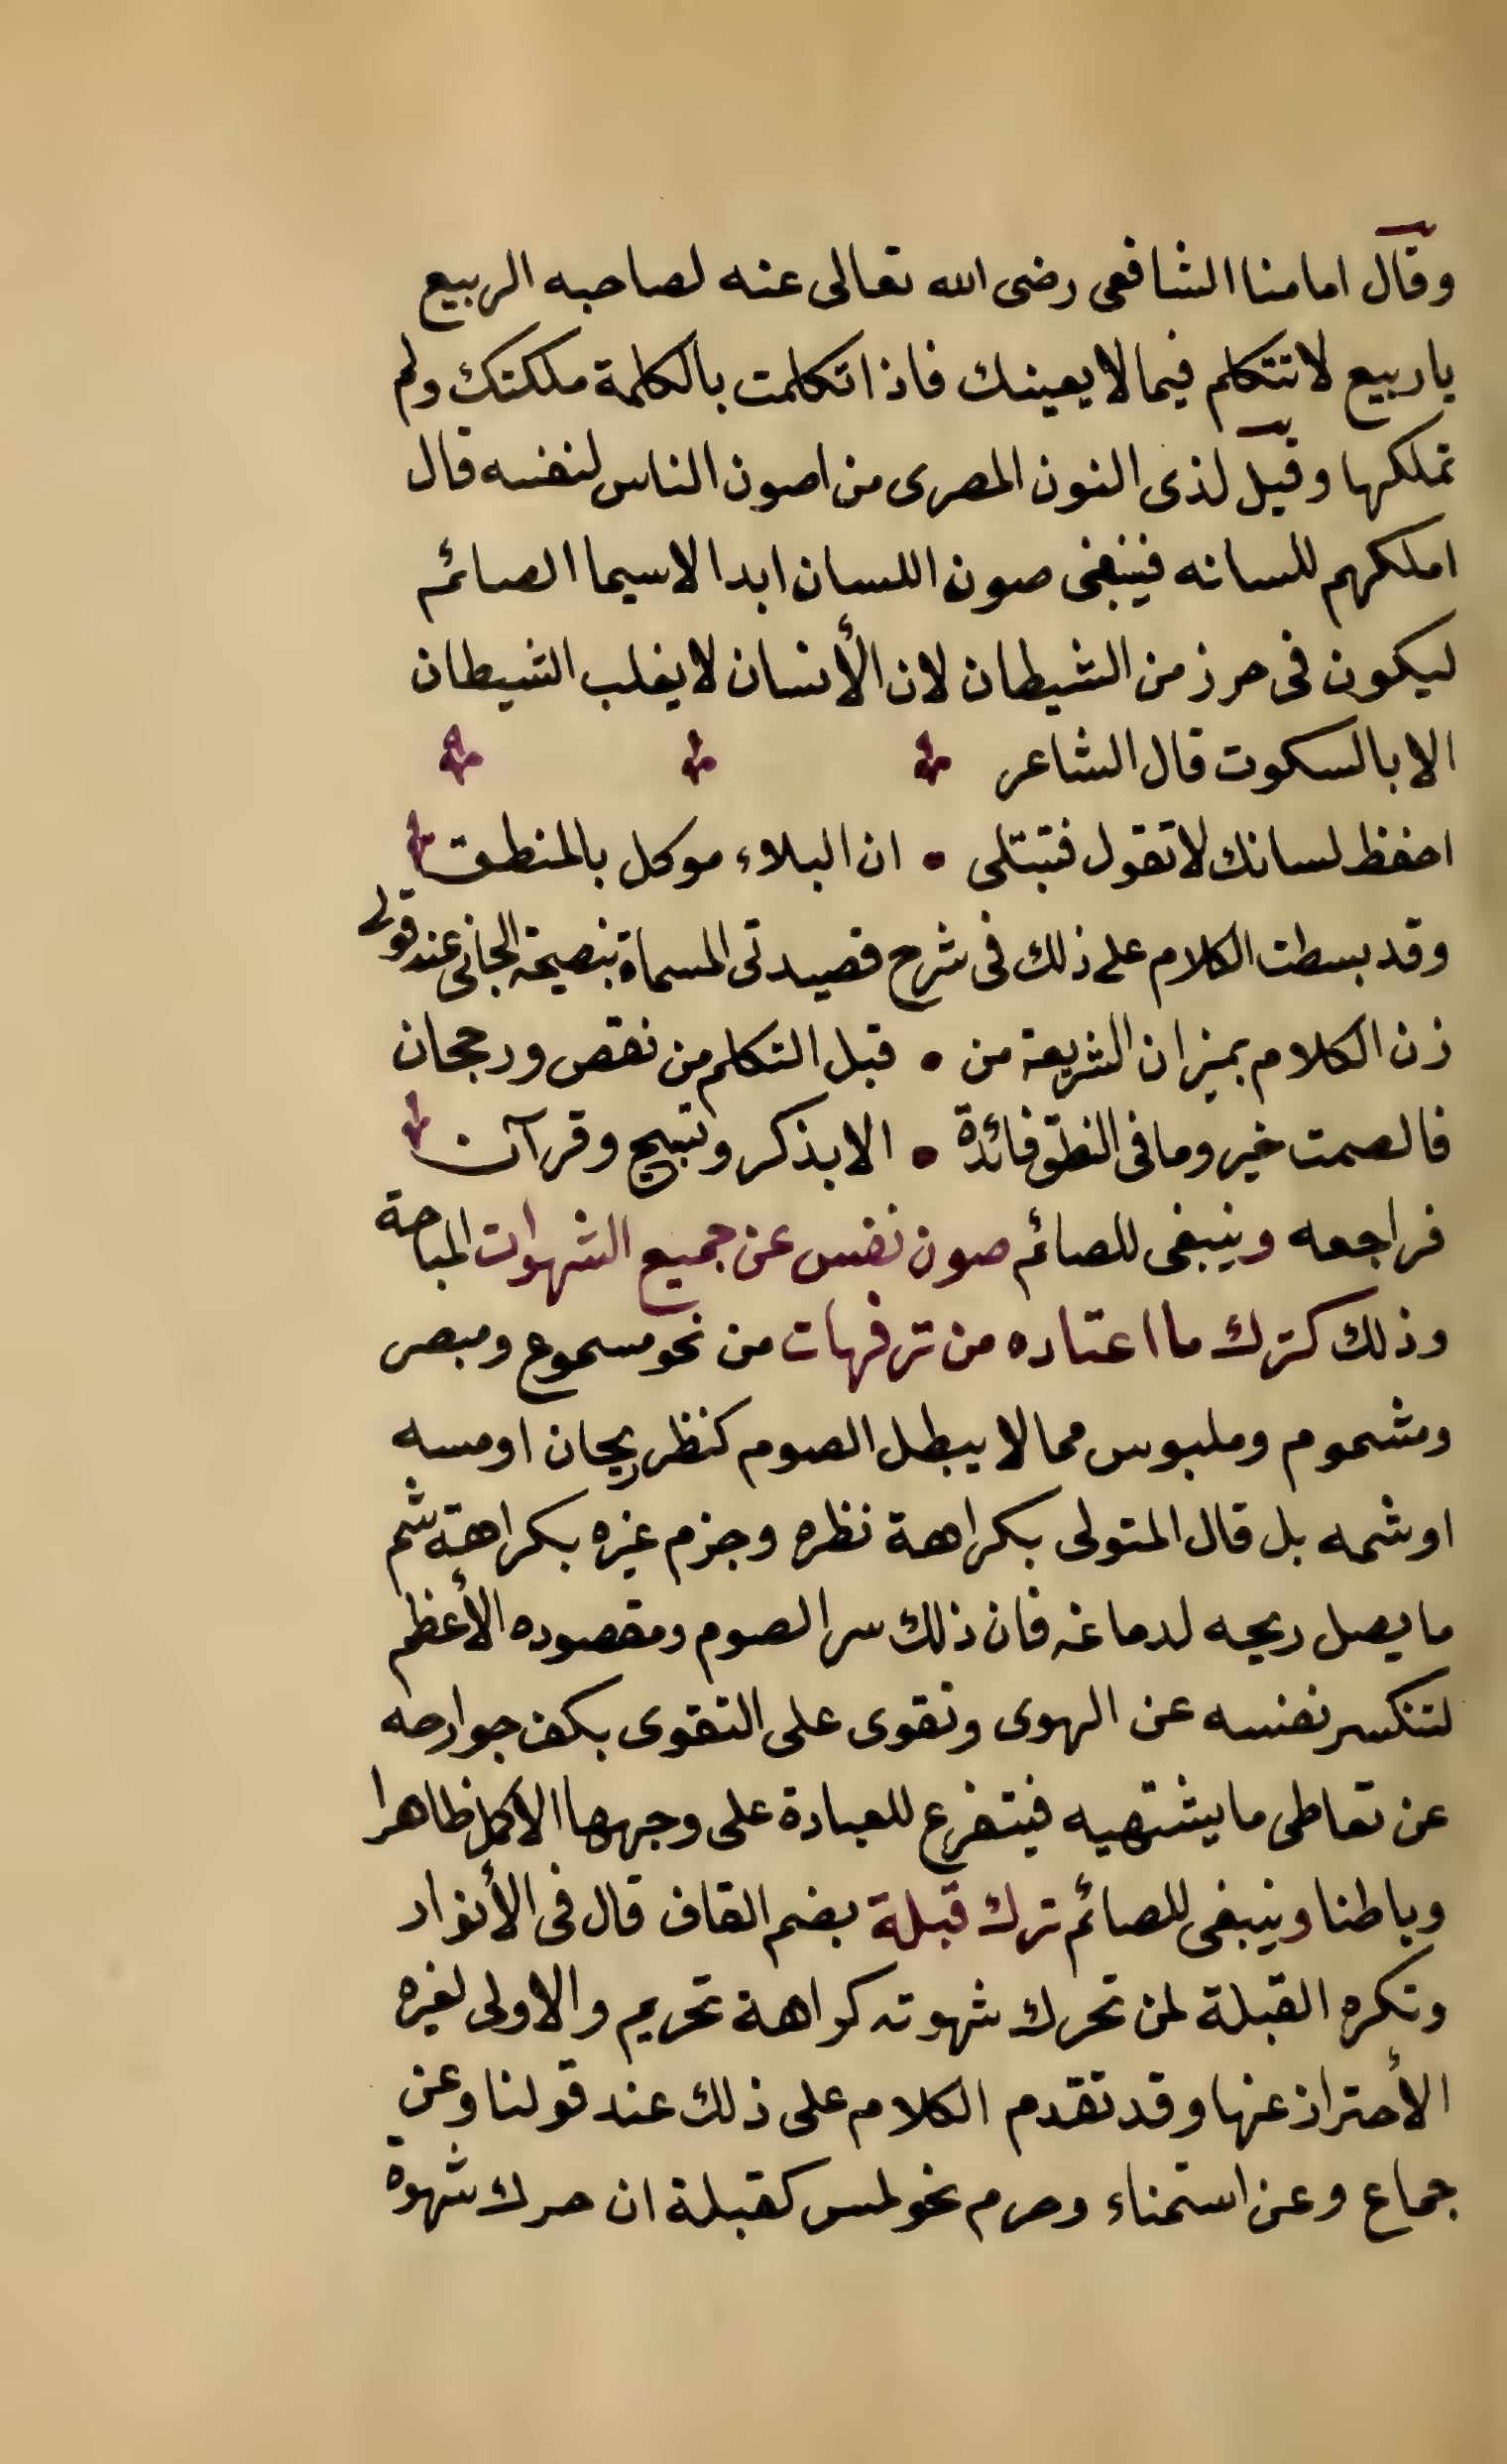 وقال امامنا الشافعى رضى الله تعالى عنه لصاحبه الربيع
ياربيع لا تتكلم فيما لا يعينك فاذا تكلمت بالكلمة ملكتك ولم
تملكها وقيل لذى النون المصرى من اصون الناس لنفسه قال
املكهم للسانه فينبغى صون اللسان ابدا لاسيما الصائم
ليكون فى حرز من الشيطان لان الأنسان لا يغلب الشيطان
الا بالسكوت قال الشاعر
احفظ لسانك لا تقول فتبتلى • ان البلاء موكل بالمنطق
وقد بسطت الكلام على ذلك فى شرح قصيدتى المسماة بنصيحة الجانى عند قولى
زن الكلام بميزان الشريعة من • قبل التكلم من نقص ورجحان
فالصمت خير وما فى النطق فائدة • الا بذكر وتسبيح وقرآن
فراجعه وينبغى للصائم صون نفس عن جميع الشهوات المباحة
وذلك كترك ما اعتاده من ترفهات من نحو مسموع ومبصر
ومشموم وملبوس مما لا يبطل الصوم كنظر ريحان او مسه
او شمه بل قال المتولى بكراهة نظره وجزم غيره بكراهة شم
ما يصل ريحه لدماغه فان ذلك سر الصوم ومقصوده الأعظم
لتنكسر نفسه عن الهوى وتقوى على التقوى بكف جوارحه
عن تعاطى ما يشتهيه فيتفرغ للعبادة على وجهها الاكمل ظاهرا
وباطنا وينبغى للصائم ترك قبلة بضم القاف قال فى الأنوار
وتكره القبلة لمن تحرك شهوته كراهة تحريم والاولى لغيره
الأحتراز عنها وقد تقدم الكلام على ذلك عند قولنا وعن
جماع وعن استمناء وحرم نحو لمس كقبلة ان حرك شهوة